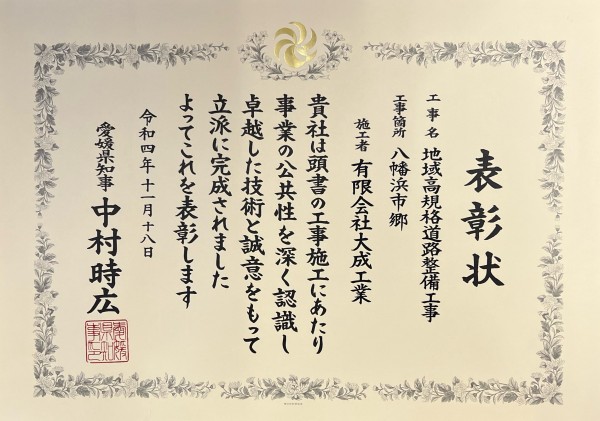 表彰状
工事名 地域高規格道路整備工事
工事箇所 八幡浜市郷
施工者 有限会社大成工業
貴社は頭書の工事施工にあたり
事業の公共性を深く認識し
卓越した技術と誠意をもって
立派に完成されました
よってこれを表彰します
令和四年十一月十八日
愛媛県知事 中村時広
愛媛県知事之印